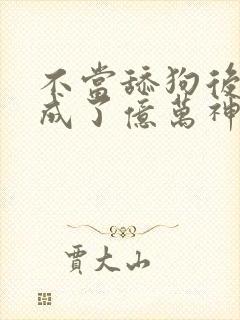 不當舔狗後
成了億萬神
賈大山